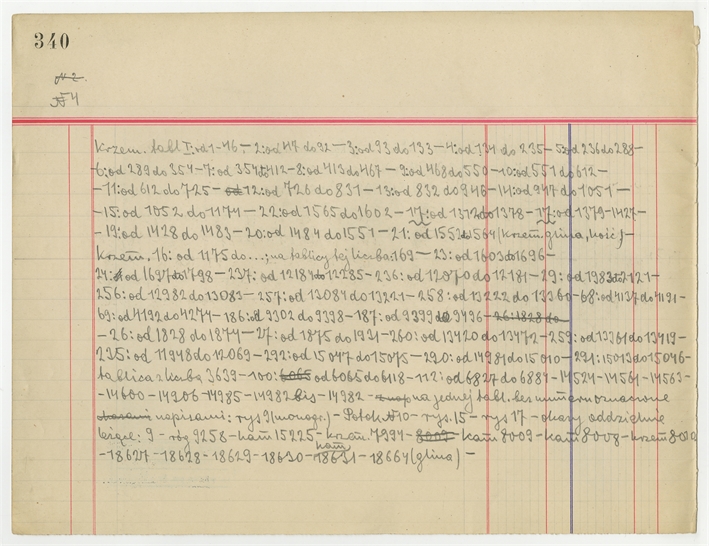 340
N 2.
N 4
Krzem. tabl I: od 1-46, - 2: od 47 do 92 - 3: od 93 do 133 - 4: od 134 do 235 - 5: od 236 do 288 -
- 6: od 289 do 354 - 7: od 354 do 412 - 8: od 413 do 467 - 9: od 468 do 550 - 10: od 551 do 612 -
- 11: od 612 do 725 - od 12: od 726 do 831 - 13: od 832 do 946 - 14: od 947 do 1051 -
- 15: od 1052 do 1174 - 22: od 1565 do 1602 - 17: od 1312 do 1378 - 17: od 1379-1427 -
- 19: od 1428 do 1483 - 20: od 1484 do 1551 - 21: od 1552 do 1564 (krzem. glina, kość) -
Krzem. 16: od 1175 do ...; na tablicy tej liczba 169 - 23: od 1603 do 1696 -
24: od 1697 do 1798 - 237: od 12184 do 12285 - 236: od 12070 do 12181 - 29: od 1983 do 2121 -
256: od 12982 do 13083 - 257: od 13084 do 13221 - 258: od 13222 do 13360 - 68: od 4137 do 4191 -
69: od 4192 do 4274 - 186: od 9302 do 9398 - 187: od 9399 do 9496 - 26: 1828 do
- 26: od 1828 do 1874 - 27: od 1875 do 1931 - 260: od 13420 do 13472 - 259: od 13361 do 13419 -
235: od 11948 do 12069 - 292: od 15047 do 15075 - 290: od 14981 do 15010 - 291: 15013 do 15046 -
tablica z liczbą 3639 - 100: 6065 od 6065 do 6118 - 112: od 6827 do 6884 - 14524 - 14561 - 14563 -
- 14600 - 14206 - 14985 - 14982 bis - 14982 - na jednej tabl. bez numeru oznaczone
napisami: rys 9 (monogr.) - Potok N 10 - rys. 15 - rys 17 - okazy oddzielnie
leżące: 9 - róg 9258 - kam 15225 - krzem. 7994 - 8009 - kam 8009 - kam 8008 - krzem 8002
- 18627 - 18628 - 18629 - 18630 - kam 18631 - 18664 (glina) -